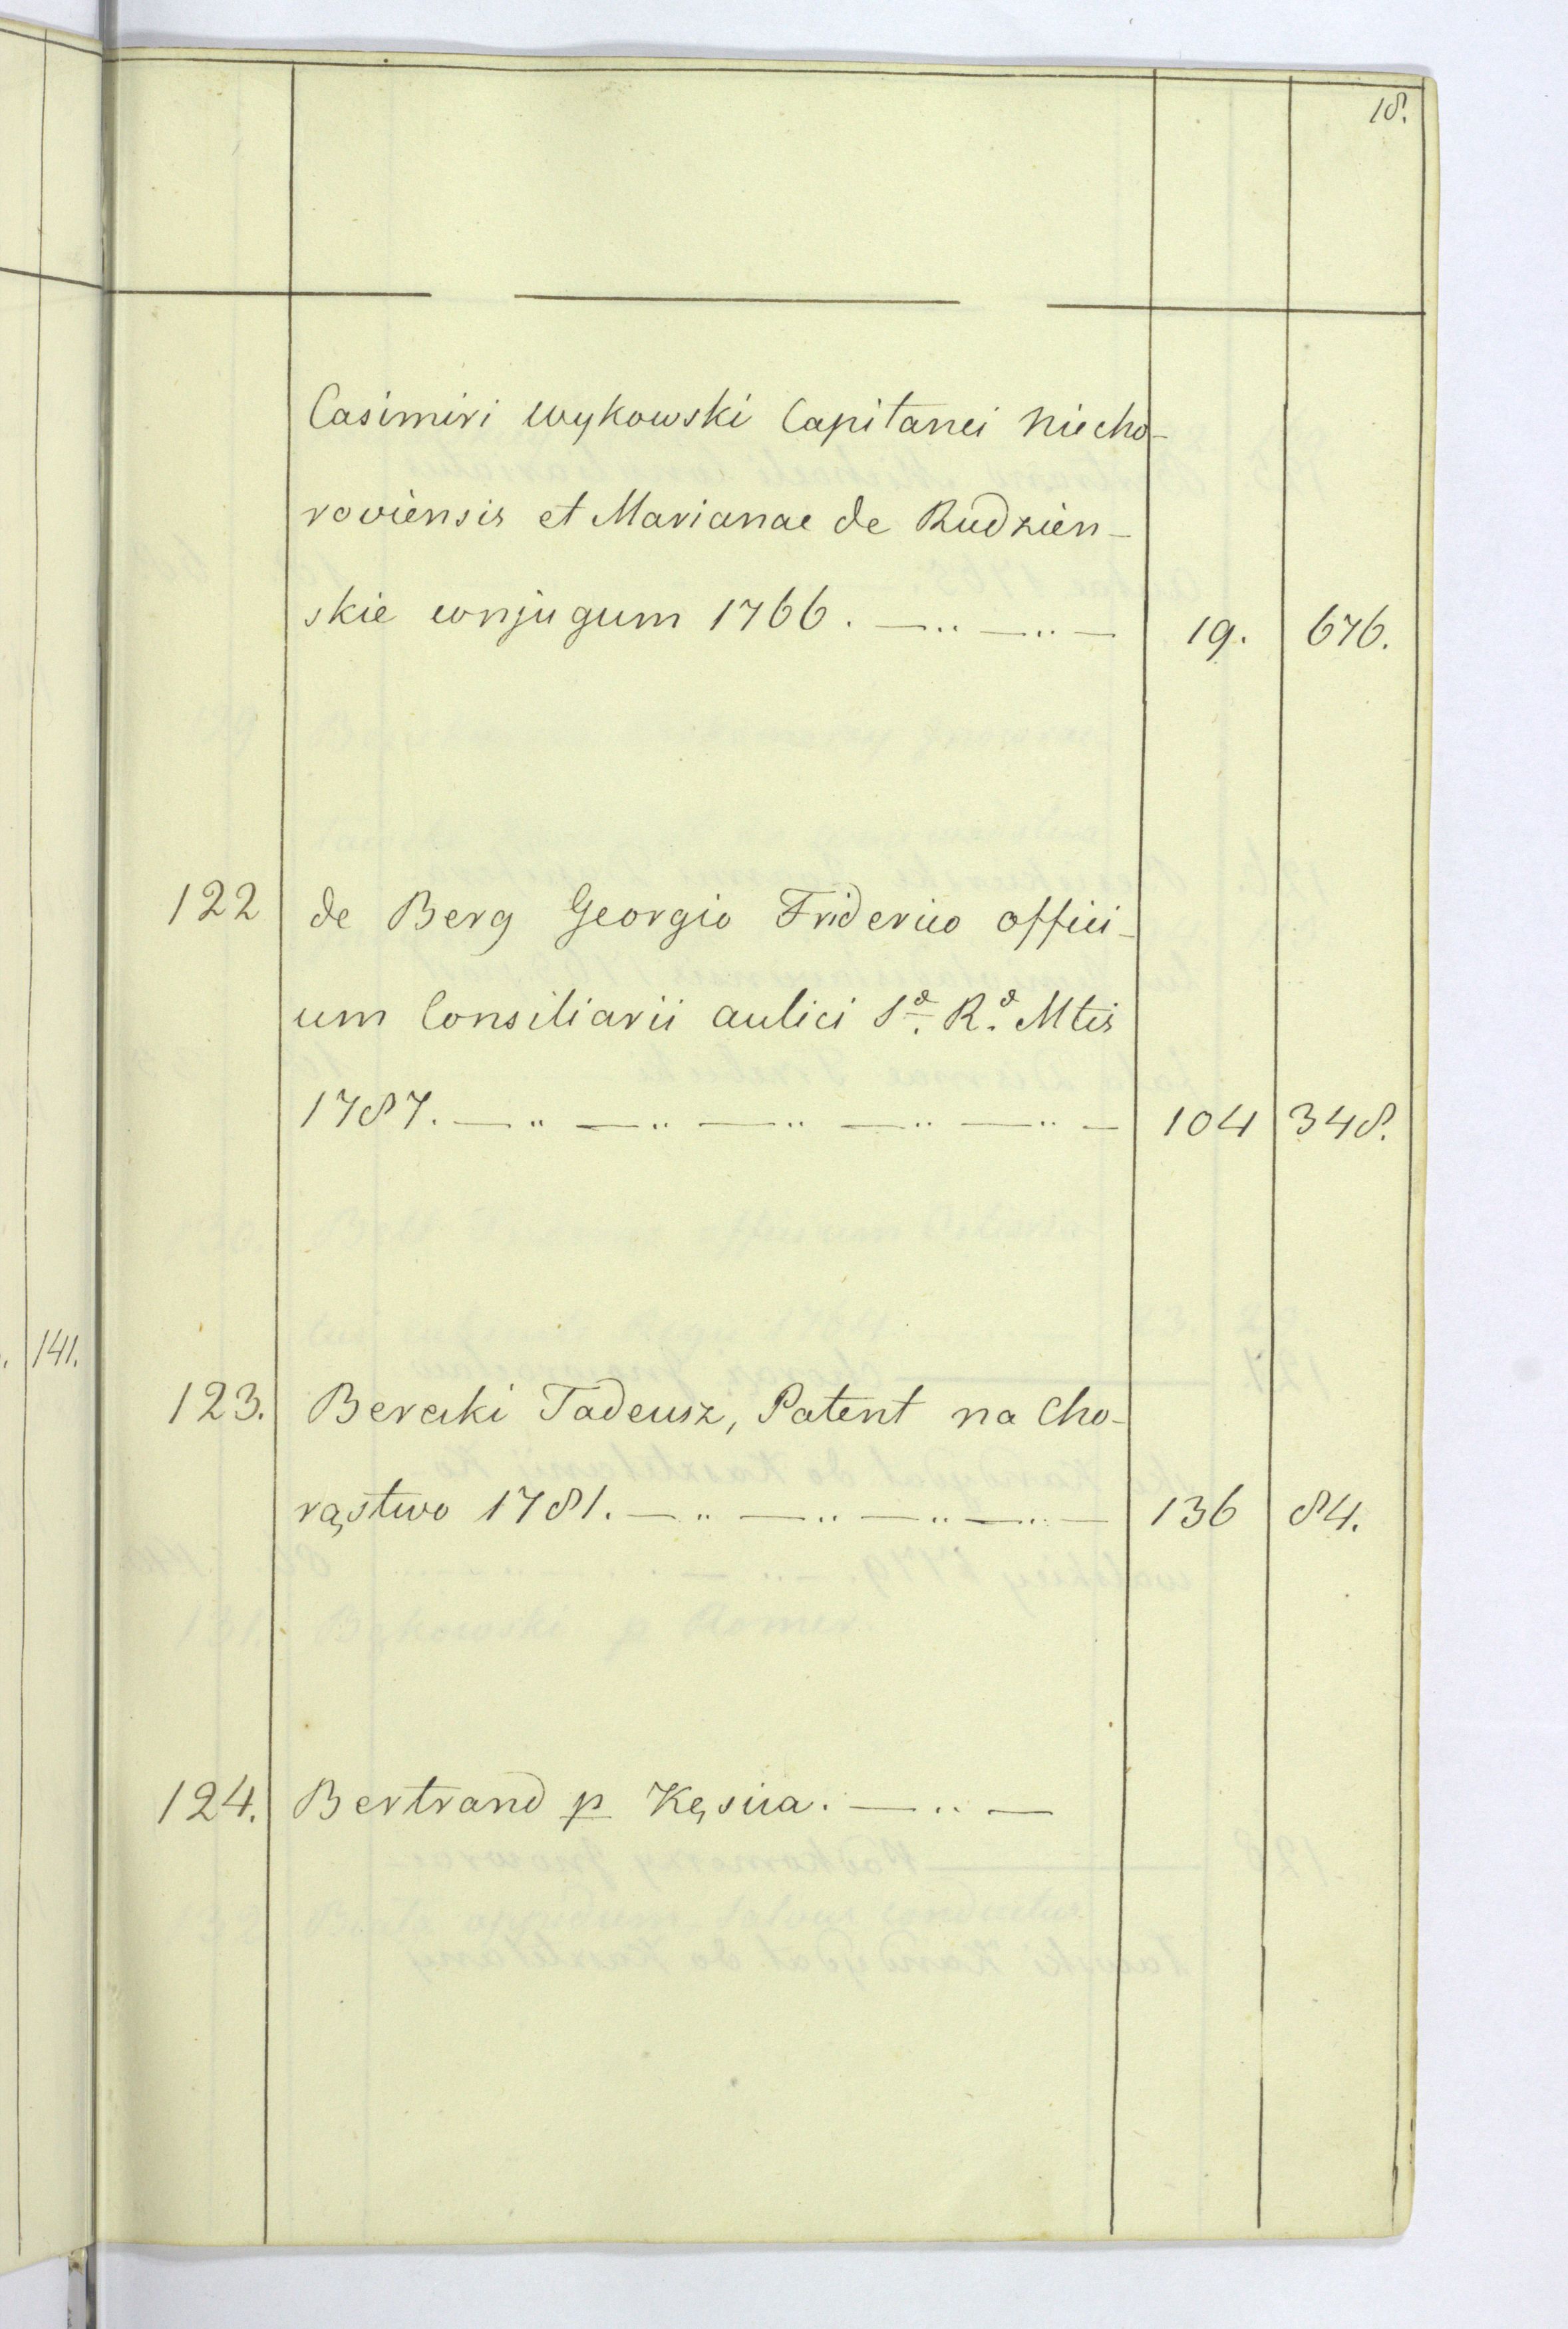 18.
Casimiri Wykowski Capitanei Niecho-
roviensis et Marianae de Rudzien-
skie conjugum 1766. 19. 676.
122 de Berg Georgio Friderico offici-
um Consiliarii aulici S. R. Mtis
1787. 104 348.
141.
123. Berecki Tadeusz, Patent na Cho-
rąstwo 1781. 136 84.
124. Bertrand p Kęsica.